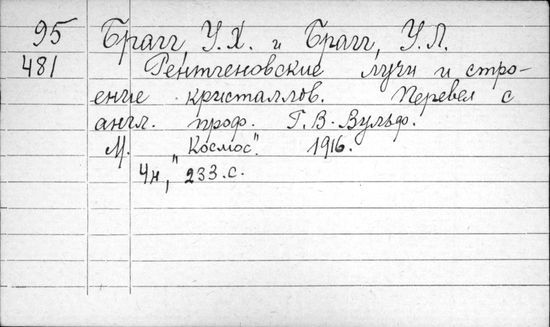 95 Брагг, У.Х. и Брагг, У.Л.
481 Рентгеновские лучи и стро-
ение кристаллов. Перевел с
англ. проф. Г.В. Вульф.
М. "Космос". 1916.
4н, 233.с.